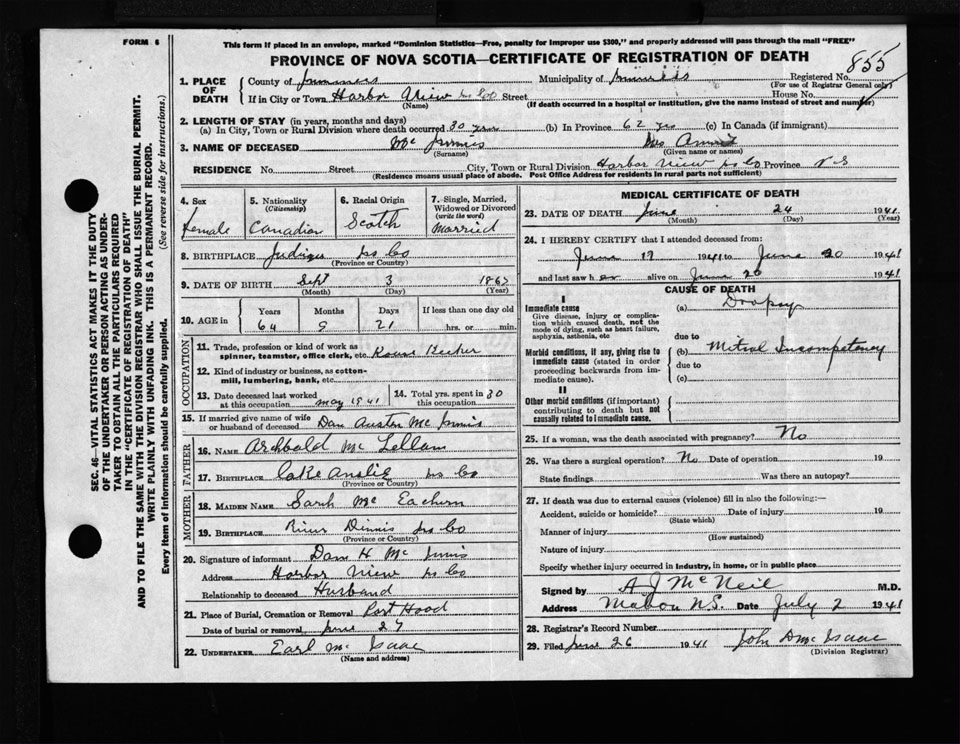 FORM 6
This form if placed in an envelope, marked "Dominion Statistics—Free, penalty for improper use $300," and properly addressed will pass through the mail "FREE"
PROVINCE OF NOVA SCOTIA—CERTIFICATE OF REGISTRATION OF DEATH
855
1. PLACE OF DEATH
County of
Municipality of
Registered No.
(For use of Registrar General only)
If in City or Town Harbor View Street House No.
(Name) (If death occurred in a hospital or institution, give the name instead of street and number)
2. LENGTH OF STAY (in years, months and days)
(a) In City, Town or Rural Division where death occurred 30 yrs (b) In Province 62 yrs (c) In Canada (if immigrant)
3. NAME OF DECEASED Mc Innis Mrs
(Surname) (Given name or names)
RESIDENCE No. Street City, Town or Rural Division Harbor View Province N S
(Residence means usual place of abode. Post Office Address for residents in rural parts not sufficient)
4. Sex
Female
5. Nationality
(Citizenship)
Canadian
6. Racial Origin
Scotch
7. Single, Married, Widowed or Divorced
(write the word)
Married
8. BIRTHPLACE Judique
(Province or Country)
9. DATE OF BIRTH Sept 3
(Month) (Day) (Year)
10. AGE in
Years Months Days If less than one day old
64 9 21 hrs. or min.
OCCUPATION
11. Trade, profession or kind of work as spinner, teamster, office clerk, etc. House Keeker
12. Kind of industry or business, as cotton-mill, lumbering, bank, etc
13. Date deceased last worked at this occupation May 1941
14. Total yrs. spent in this occupation 30
15. If married give name of wife or husband of deceased Dan Austin Mc Innis
FATHER
16. NAME Archbald Mc Lellan
17. BIRTHPLACE Lake Anslie
(Province or Country)
MOTHER
18. MAIDEN NAME Sarh Mc Eachern
19. BIRTHPLACE River Dinnis
(Province or Country)
20. Signature of informant Dan H Mc Innis
Address Harbor View
Relationship to deceased Husband
21. Place of Burial, Cremation or Removal Port Hood
Date of burial or removal June 27
22. UNDERTAKER Earl Mc Isaac
(Name and address)
MEDICAL CERTIFICATE OF DEATH
23. DATE OF DEATH June 24 1941
(Month) (Day) (Year)
24. I HEREBY CERTIFY that I attended deceased from:
June 17 1941 to June 20 1941
and last saw her alive on June 20 1941
CAUSE OF DEATH
I
Immediate cause
Give disease, injury or complication which caused death, not the mode of dying, such as heart failure, asphyxia, asthenia, etc
(a) Dropsy
due to
Morbid conditions, if any, giving rise to immediate cause (stated in order proceeding backwards from immediate cause).
(b) Mitral Incompetency
due to
(c)
II
Other morbid conditions (if important) contributing to death but not causally related to immediate cause.
25. If a woman, was the death associated with pregnancy? No
26. Was there a surgical operation? No Date of operation 19
State findings Was there an autopsy?
27. If death was due to external causes (violence) fill in also the following:—
Accident, suicide or homicide? Date of injury 19
(State which)
Manner of injury
(How sustained)
Nature of injury
Specify whether injury occurred in industry, in home, or in public place
Signed by A J McNeil M.D.
Address Mabou N.S. Date July 2 1941
28. Registrar's Record Number
29. Filed June 26 1941 John D Mc Isaac
(Division Registrar)
SEC. 46—VITAL STATISTICS ACT MAKES IT THE DUTY
OF THE UNDERTAKER OR PERSON ACTING AS UNDER-
TAKER TO OBTAIN ALL THE PARTICULARS REQUIRED
IN THE "CERTIFICATE OF REGISTRATION OF DEATH"
AND TO FILE THE SAME WITH THE DIVISION REGISTRAR WHO SHALL ISSUE THE BURIAL PERMIT.
WRITE PLAINLY WITH UNFADING INK. THIS IS A PERMANENT RECORD.
Every item of information should be carefully supplied. (See reverse side for instructions.)